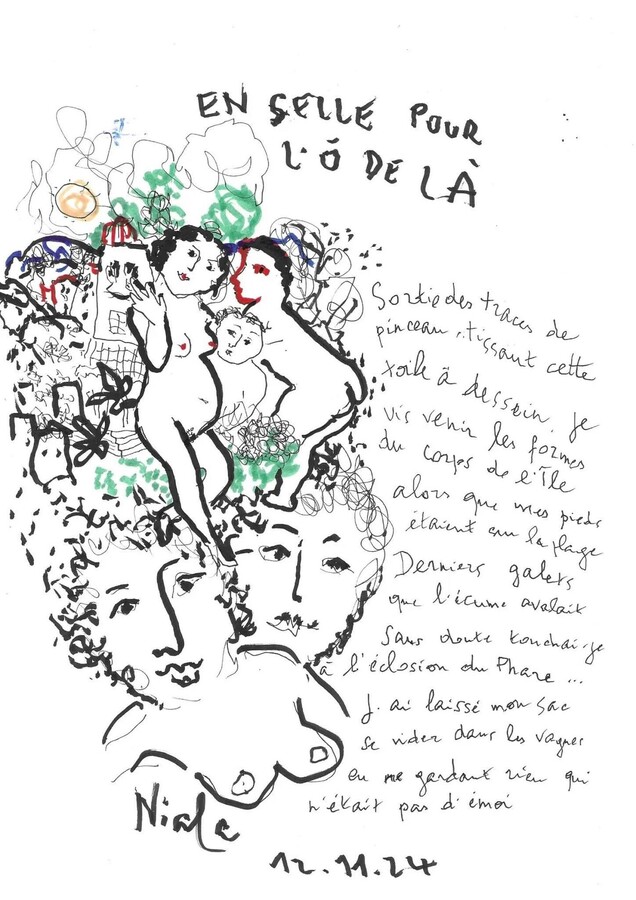 EN SELLE POUR
L'Ô DE LÀ
Sortie des traces de
pinceau, tissant cette
toile à dessein, je
vis venir les formes
du corps de l'Île
alors que mes pieds
étaient sur la plage
Derniers galets
que l'écume avalait
Sans doute touchai-je
à l'éclosion du Phare ...
J'ai laissé mon sac
se vider dans les vagues
en me gardant rien qui
n'était pas d'émoi
Niala
12.11.24